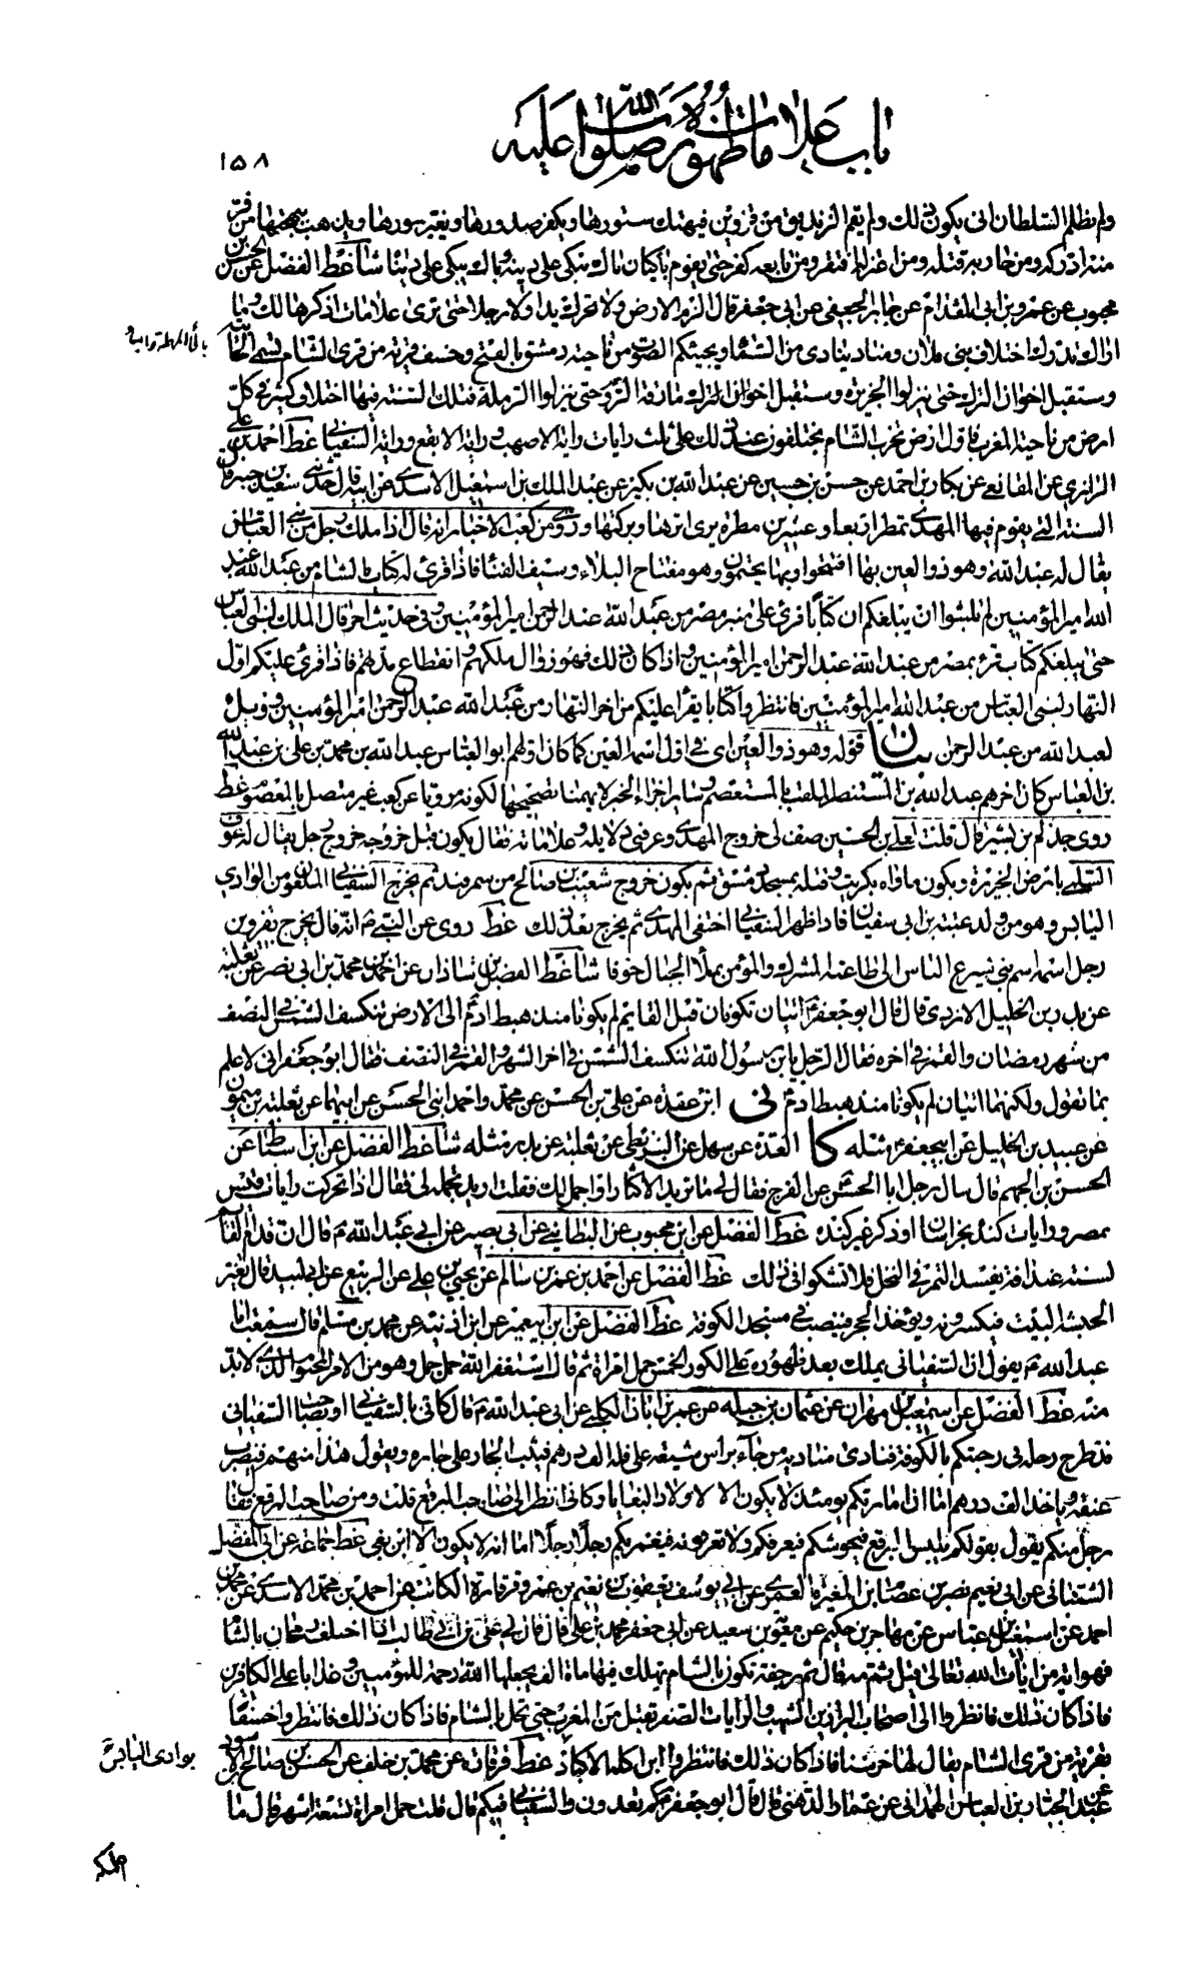 باب علامات ظهوره صلوات الله عليه
١٥٨
ولم يظلم السلطان انى يكون ذلك ولم يقم الزنديق من قزوين فيهتك ستورها ويكفر صدورها ويغير سورها ويذهب ببهجتها من فر
منه ادركه ومن حاربه قتله ومن اعتزله افتقر ومن تابعه كفر حتى يقوم باكيان باك يبكى على دينه وباك يبكى على دنياه غط الفضل عن الحسن بن
محبوب عن عمرو بن ابى المقدام عن جابر الجعفى عن ابى جعفر قال الزم الارض ولا تحرك يدا ولا رجلا حتى ترى علامات اذكرها لك وما
اراك تدرك اختلاف بنى فلان ومناد ينادى من السماء ويجيئكم الصوت من ناحية دمشق بالفتح وخسف قرية من قرى الشام تسمى الجابية
وستقبل اخوان الترك حتى ينزلوا الجزيرة وستقبل اخوان الترك مارقة الروم حتى ينزلوا الرملة فتلك السنة فيها اختلاف كثير فى كل
ارض من ناحية المغرب فاول ارض تخرب الشام يختلفون عند ذلك على ثلث رايات راية الاصهب وراية الابقع وراية السفيانى غط احمد بن على
الرازى عن المقانعى عن بكار بن احمد عن حسن بن حسين عن عبد الله بن بكير عن عبد الملك بن اسمعيل الاسدى عن ابيه قال حدثنى سعيد بن جبير قال
السنة التى يقوم فيها المهدى تمطر اربعا وعشرين مطرة يرى اثرها وبركتها وروى عن كعب الاحبار انه قال اذا ملك رجل من بنى العباس
يقال له عبد الله وهو ذو العين بها افتتحوا وبها يختمون وهو مفتاح البلاء وسيف الفناء فاذا قرئ له كتاب بالشام من عبد الله عبد
الله امير المؤمنين لم تلبثوا ان يبلغكم ان كتابا قرئ على منبر مصر من عبد الله عبد الرحمن امير المؤمنين وفى حديث اخر قال الملك لبنى العباس
حتى يبلغكم كتاب قرئ بمصر من عبد الله عبد الرحمن امير المؤمنين واذا كان ذلك فهو زوال ملكهم وانقطاع مدتهم فاذا قرئ عليكم اول
النهار لبنى العباس من عبد الله امير المؤمنين فانتظروا كتابا يقرأ عليكم من اخر النهار من عبد الله عبد الرحمن امير المؤمنين وويل
لعبد الله من عبد الرحمن بيان قوله وهو ذو العين اى فى اول اسمه العين كما كان اولهم ابو العباس عبد الله بن محمد بن على بن عبد الله
بن العباس كان اخرهم عبد الله بن المستنصر الملقب بالمستعصم وساير اجزاء الخبر لا يهمنا تصحيحها لكونه مرويا عن كعب غير متصل بالمعصوم غط
روى حذلم بن بشير قال قلت لعلى بن الحسين صف لى خروج المهدى وعرفنى دلايله وعلاماته فقال يكون قبل خروجه خروج رجل يقال له عوف
السلمى بارض الجزيرة ويكون ماواه بكريت وقتله بمسجد دمشق ثم يكون خروج شعيب بن صالح من سمرقند ثم يخرج السفيانى الملعون من الوادى
اليابس وهو من ولد عتبة بن ابى سفيان فاذا ظهر السفيانى اختفى المهدى ثم يخرج بعد ذلك غط روى عن النبى ص انه قال يخرج بقزوين
رجل اسمه اسم نبى يسرع الناس الى طاعته المشرك والمؤمن يملأ الجبال خوفا شا غط الفضل بن شاذان عن احمد بن محمد بن ابى نصر عن ثعلبة
عن بدر بن الخليل الازدى قال قال ابو جعفر ع ايتان تكونان قبل القايم لم يكونا منذ هبط ادم الى الارض تنكسف الشمس فى النصف
من شهر رمضان والقمر فى اخره فقال الرجل يا بن رسول الله تنكسف الشمس فى اخر الشهر والقمر فى النصف فقال ابو جعفر انى لاعلم
بما تقول ولكنهما ايتان لم يكونا منذ هبط ادم نى ابن عقدة عن على بن الحسن عن محمد واحمد ابنى الحسن عن ابيهما عن ثعلبة بن ميمون
عن عبيد بن الخليل عن ابيجعفر ع مثله كا العدة عن سهل عن البزنطى عن ثعلبة عن بدر مثله شا غط الفضل عن ابن اسباط عن
الحسن بن الجهم قال سال رجل ابا الحسن عن الفرج فقال لى ما تريد الاكثار او اجمل لك فقلت اريد تجمله لى فقال اذا تحركت رايات قيس
بمصر ورايات كندة بخراسان او ذكر غير كندة غط الفضل عن ابن محبوب عن البطاينى عن ابى بصير عن ابى عبد الله ع قال ان قدام القائم
لسنة غيداقة يفسد التمر فى النخل فلا تشكوا فى ذلك غط الفضل عن احمد بن عمر بن سالم عن يحيى بن على عن الربيع عن ابى لبيد قال تغير
الحبشة البيت فيكسرونه ويؤخذ الحجر فينصب فى مسجد الكوفة غط الفضل عن ابن ابيعمير عن ابن اذينة عن محمد بن مسلم قال سمعت ابا
عبد الله ع يقول ان السفيانى يملك بعد ظهوره على الكور الخمس حمل امرأة ثم قال استغفر الله حمل جمل وهو من الامر المحتوم الذى لا بد
منه غط الفضل عن اسمعيل بن مهران عن عثمان بن جبلة عن عمر بن ابان الكلبى عن ابى عبد الله ع قال كانى بالسفيانى او بصاحب السفيانى
قد طرح رحله فى رحبتكم بالكوفة فنادى مناديه من جاء براس شيعة على فله الف درهم فيثب الجار على جاره ويقول هذا منهم فيضرب
عنقه وياخذ الف درهم اما ان امارتكم يومئذ لا يكون الا لاولاد البغايا وكانى انظر الى صاحب البرقع قلت ومن صاحب البرقع فقال
رجل منكم يقول بقولكم يلبس البرقع فيحوشكم فيعرفكم ولا تعرفونه فيغمز بكم رجلا رجلا اما انه لا يكون الا ابن بغى غط جماعة عن ابى المفضل
الشيبانى عن ابى نعيم نصر بن عصام بن المغيرة العمرى عن ابى يوسف يعقوب بن نعيم بن عمرو قرقارة الكاتب عن احمد بن محمد الاسدى عن محمد بن
احمد عن اسمعيل بن عباس عن مهاجر بن حكيم عن معوية بن سعيد عن ابى جعفر محمد بن على قال قال لى على بن ابى طالب اذا اختلف رمحان بالشام
فهو اية من ايات الله تعالى قيل ثم مه قال ثم رجفة تكون بالشام تهلك فيها ماة الف يجعلها الله رحمة للمؤمنين وعذابا على الكافرين
فاذا كان ذلك فانظروا الى اصحاب البراذين الشهب والرايات الصفر تقبل من المغرب حتى تحل بالشام فاذا كان ذلك فانتظروا خسفا
بقرية من قرى الشام يقال لها خرشنا فاذا كان ذلك فانتظروا ابن اكلة الاكباد بوادى اليابس غط قرقارة عن محمد بن خلف عن الحسن بن صالح بن الاسود
عن عبد الجبار بن العباس الهمدانى عن عمار الدهنى قال قال ابو جعفر كم تعدون بقاء السفيانى فيكم قال قلت حمل امرأة تسعة اشهر قال ما